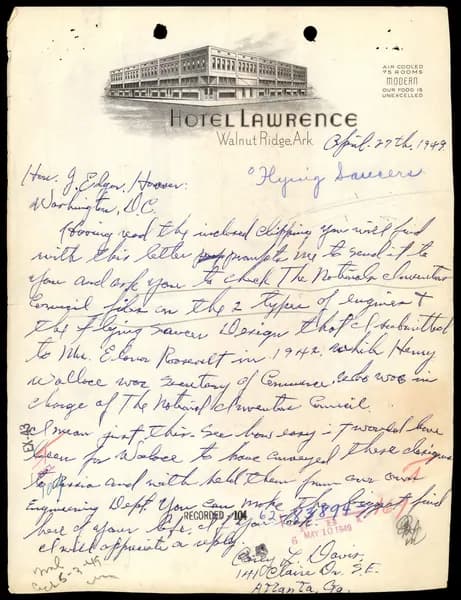 AIR COOLED
75 ROOMS
MODERN
OUR FOOD IS
UNEXCELLED
HOTEL LAWRENCE
Walnut Ridge, Ark.
April. 27th, 1949.
Hon. J. Edgar, Hoover.
"Flying Saucers
Washington, D.C.
Having read the inclosed clipping you will find
with this letter prompts me to send it to
you and ask you to check The National Inventors
Council files on the 2 types of engines &
the Flying Saucer Design that I submitted
to Mrs. Elenor Roosevelt in 1942, which Henry
Wallace was Secretary of Commerce, who was in
charge of The National Inventors Council.
I mean just this. See how easy it would have
been for Wallace to have conveyed these designs
to Russia and with held them from our own
Engineering Dept. You can make the biggest find
here of your life, if you look.
I will appreciate a reply.
EX-43
RECORDED - 104
62-83894-
MAY 10 1949
Davis
141 Claire Dr. S.E.
Atlanta, Ga.